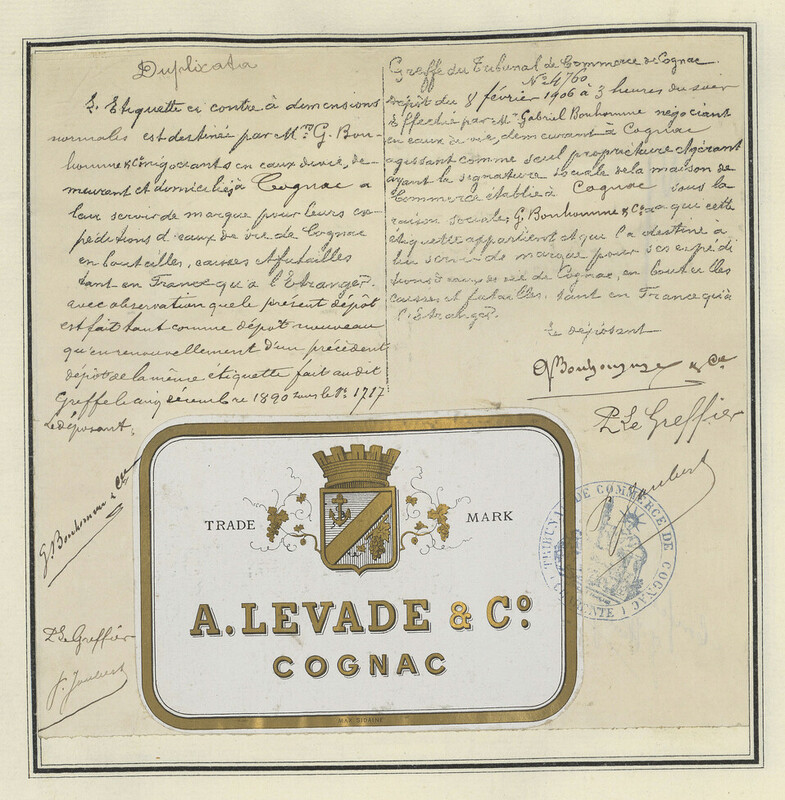 Duplicata
L'Etiquette ci contre à dimensions
normales est destinée par Mrs G. Bon-
homme & Cie négociants en eaux de vie, de-
meurant et domiciliés à Cognac a
leur servir de marque pour leurs ex-
péditions d'eaux de vie de Cognac
en bouteilles, caisses et futailles
tant en France qu'à l'Etranger.
avec observation que le présent dépôt
est fait tant comme dépôt nouveau
qu'en renouvellement d'un précédent
dépôt de la même étiquette fait audit
Greffe le cinq décembre 1890 sous le No 1717
Le déposant,
G Bonhomme & Cie
P. Le Greffier
J. Joubert
Greffe du Tribunal de Commerce de Cognac
No 4760
Dépôt du 8 février 1906 à 3 heures du soir
Effectué par Mr Gabriel Bonhomme négociant
en eaux de vie, demeurant à Cognac
agissant comme seul propriétaire et gérant
ayant la signature sociale de la maison de
Commerce établie à Cognac sous la
raison sociale; G. Bonhomme & Cie a qui cette
étiquette appartient et qui l'a destiné à
lui servir de marque pour ses expédi
tions d'eaux de vie de Cognac, en bouteilles
caisses et futailles, tant en France qu'à
l'Etranger.
Le déposant
G Bonhomme & Cie
P. Le Greffier
J. Joubert
TRIBUNAL DE COMMERCE DE COGNAC
(CHARENTE)
TRADE MARK
A. LEVADE & Co.
COGNAC
MAX SIDAINE